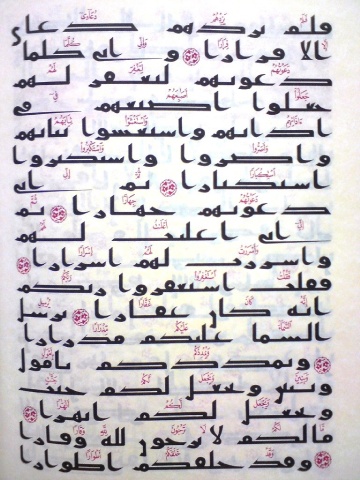 فلم يزدهم دعاي
الا فرارا واني كلما
دعوتهم لتغفر لهم
جعلوا اصبعهم في
اذانهم واستغشوا ثيابهم
واصروا واستكبروا
استكبارا ثم اني
دعوتهم جهارا ثم
اني اعلنت لهم
واسررت لهم اسرارا
فقلت استغفروا ربكم
انه كان غفارا يرسل
السما عليكم مدرارا
ويمددكم باموال
وبنين ويجعل لكم جنت
ويجعل لكم انهرا
ما لكم لا ترجون لله وقارا
وقد خلقكم اطوارا